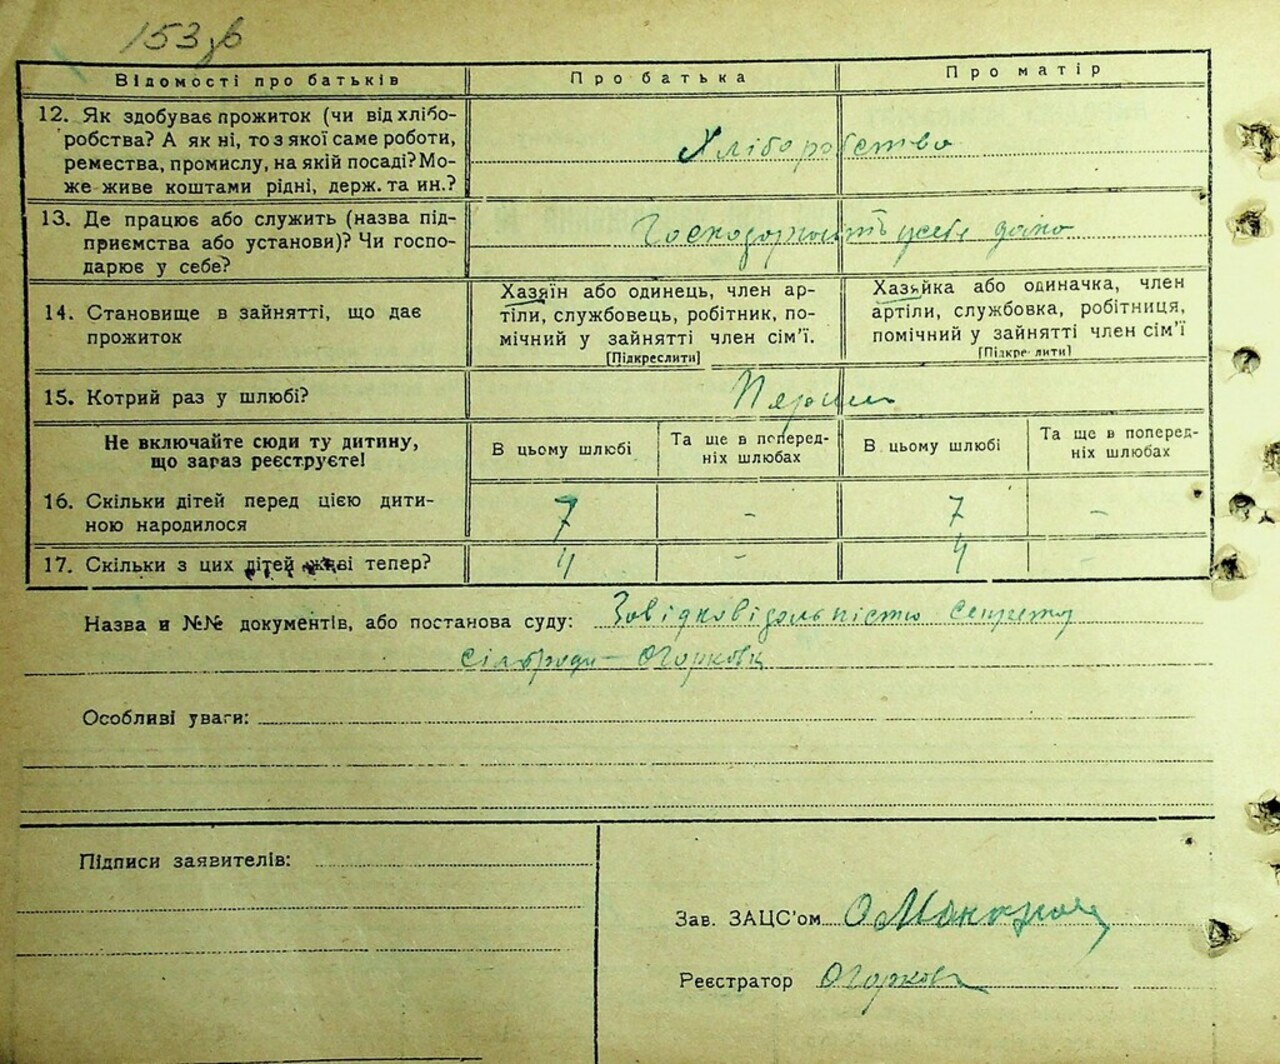 153зв
Відомості про батьків
Про батька
Про матір
12. Як здобуває прожиток (чи від хлібо-
робства? А як ні, то з якої саме роботи,
ремества, промислу, на якій посаді? Мо-
же живе коштами рідні, держ. та ин.?
Хліборобство
13. Де працює або служить (назва під-
приємства або установи)? Чи госпо-
дарює у себе?
у себе дома
14. Становище в зайнятті, що дає
прожиток
Хазяїн або одинець, член ар-
тіли, службовець, робітник, по-
мічний у зайнятті член сім'ї.
[Підкреслити]
Хазяйка або одиначка, член
артіли, службовка, робітниця,
помічний у зайнятті член сім'ї
[Підкре лити]
15. Котрий раз у шлюбі?
Не включайте сюди ту дитину,
що зараз реєструєте!
В цьому шлюбі
Та ще в поперед-
ніх шлюбах
В цьому шлюбі
Та ще в поперед-
ніх шлюбах
16. Скільки дітей перед цією дити-
ною народилося
7 - 7 -
17. Скільки з цих дітей живі тепер?
4 - 4 -
Назва и №№ документів, або постанова суду: За відповідальністю
сільради - Огоркова
Особливі уваги:
Підписи заявителів:
Зав. ЗАЦС'ом
Реєстратор Огоркова